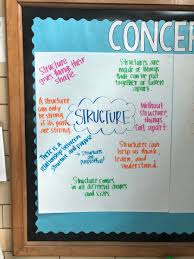 CONCE
Structure
gives things their
shape
Structures
are made of things
that can be put
together or
taken apart
A structure
can only
be strong
if its parts
are strong.
STRUCTURE
Without
structure,
things
fall apart.
There is a
relationship between
structure and purpose
→ Structures
are
purposeful!
Structures can
help us think,
learn, and
understand.
Structure comes
in all different shapes
and sizes.